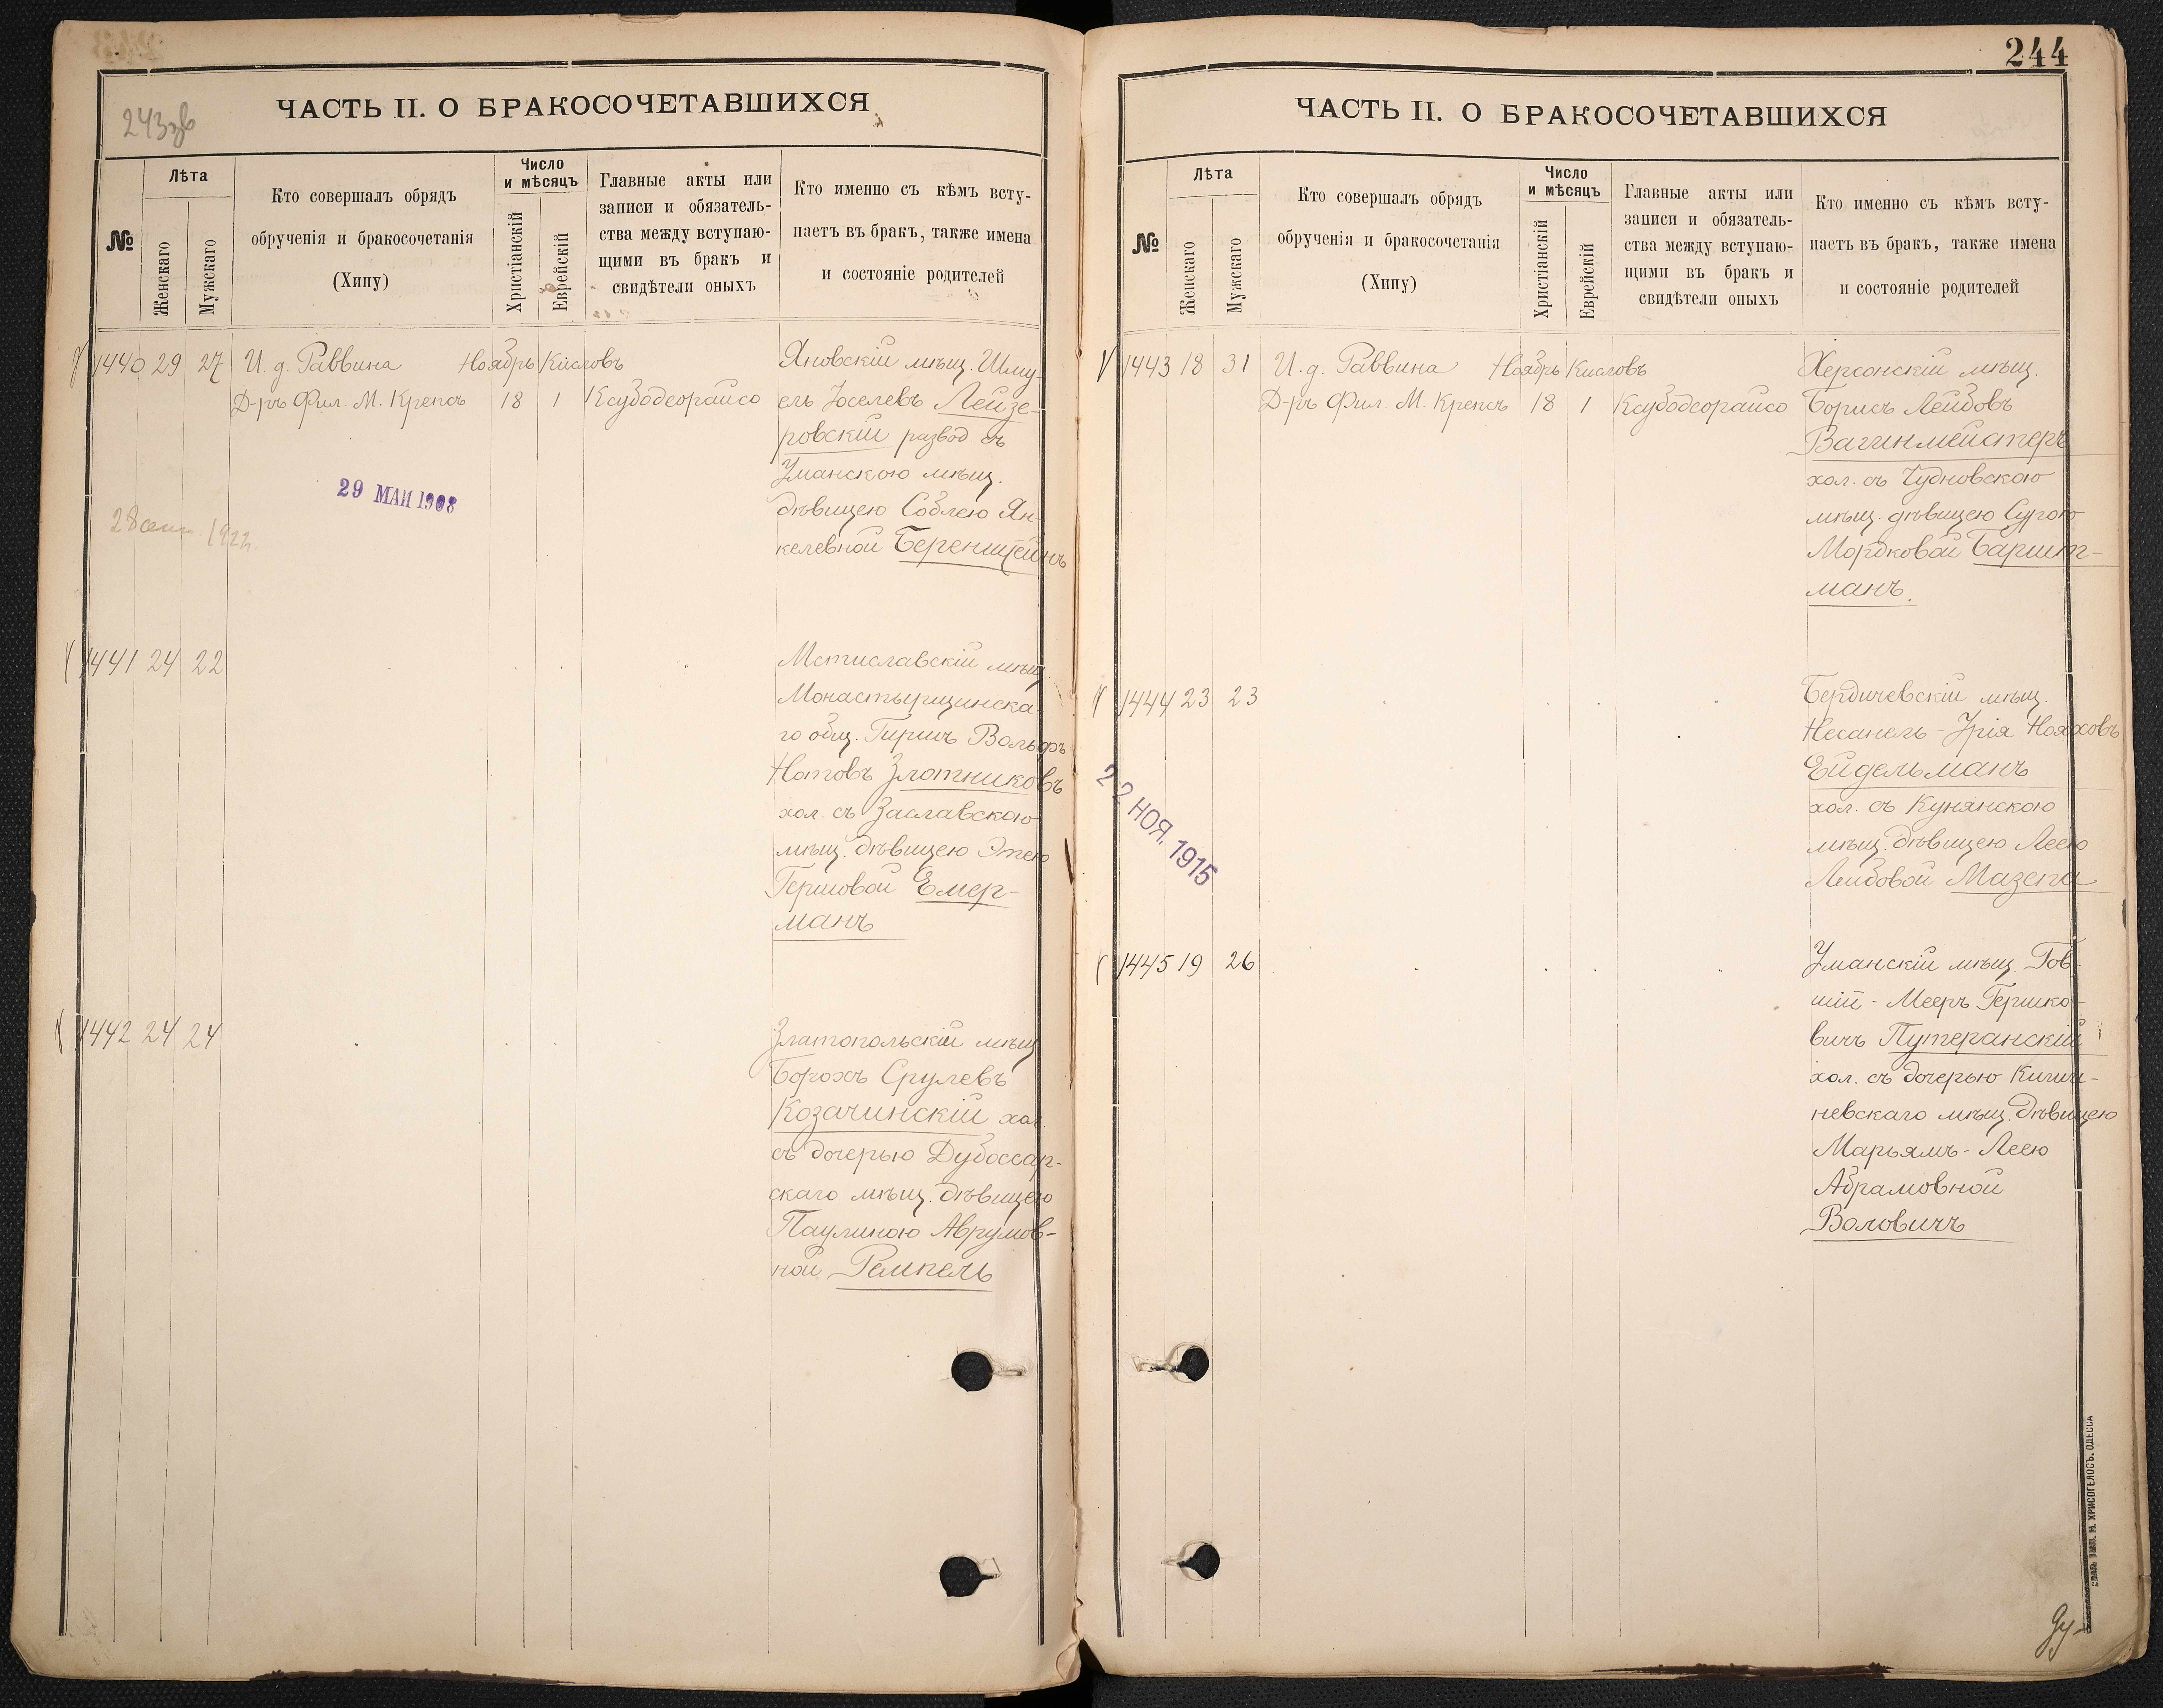 243 зв
ЧАСТЬ II. О БРАКОСОЧЕТАВШИХСЯ
№
Лѣта
Женскаго
Мужскаго
Кто совершалъ обрядъ
обрученія и бракосочетанія
(Хипу)
Число
и мѣсяцъ
Христіанскій
Еврейскій
Главные акты или
записи и обязатель-
ства между вступаю-
щими въ бракъ и
свидѣтели оныхъ
Кто именно съ кѣмъ всту-
паетъ въ бракъ, также имена
и состояніе родителей
1440 29 27 И. д. Раввина Ноябрь Кислевъ
Д-ръ Фил. М. Крепсъ 18 1 Ксубодеорайсо
Яновскій мѣщ. Шму-
ель Іоселевъ Лейзе-
ровскій развод. съ
Уманскою мѣщ.
дѣвицею Соблею Ян-
келевной Беренштейнъ
29 МАИ 1908
28 сент. 1922
1441 24 22
Мстиславскій мѣщ.
Монастырщинска-
го общ. Гиршъ Вольфъ
Нотовъ Злотниковъ
хол. съ Заславскою
мѣщ. дѣвицею Этею
Гершовой Емер-
манъ
1442 24 24
Златопольскій мѣщ.
Борохъ Срулевъ
Козачинскій хол.
съ дочерью Дубоссар-
скаго мѣщ. дѣвицею
Паулиною Аврумов-
ной Ремпель
244
ЧАСТЬ II. О БРАКОСОЧЕТАВШИХСЯ
№
Лѣта
Женскаго
Мужскаго
Кто совершалъ обрядъ
обрученія и бракосочетанія
(Хипу)
Число
и мѣсяцъ
Христіанскій
Еврейскій
Главные акты или
записи и обязатель-
ства между вступаю-
щими въ бракъ и
свидѣтели оныхъ
Кто именно съ кѣмъ всту-
паетъ въ бракъ, также имена
и состояніе родителей
1443 18 31 И. д. Раввина Ноябрь Кислевъ
Д-ръ Фил. М. Крепсъ 18 1 Ксубодеорайсо
Херсонскій мѣщ.
Борисъ Лейбовъ
Вагинмейстеръ
хол. съ Чудновскою
мѣщ. дѣвицею Сурою
Мордковой Баришт-
манъ.
1444 23 23
Бердичевскій мѣщ.
Несанель-Урія Нояховъ
Ейдельманъ
хол. съ Кунянскою
мѣщ. дѣвицею Леею
Лейбовой Мазепа
22 НОЯ. 1915
1445 19 26
Уманскій мѣщ. Гов-
шій-Мееръ Гершко-
вичъ Путеранскій
хол. съ дочерью Киши-
невскаго мѣщ. дѣвицею
Марьямъ-Леею
Абрамовной
Воловичъ